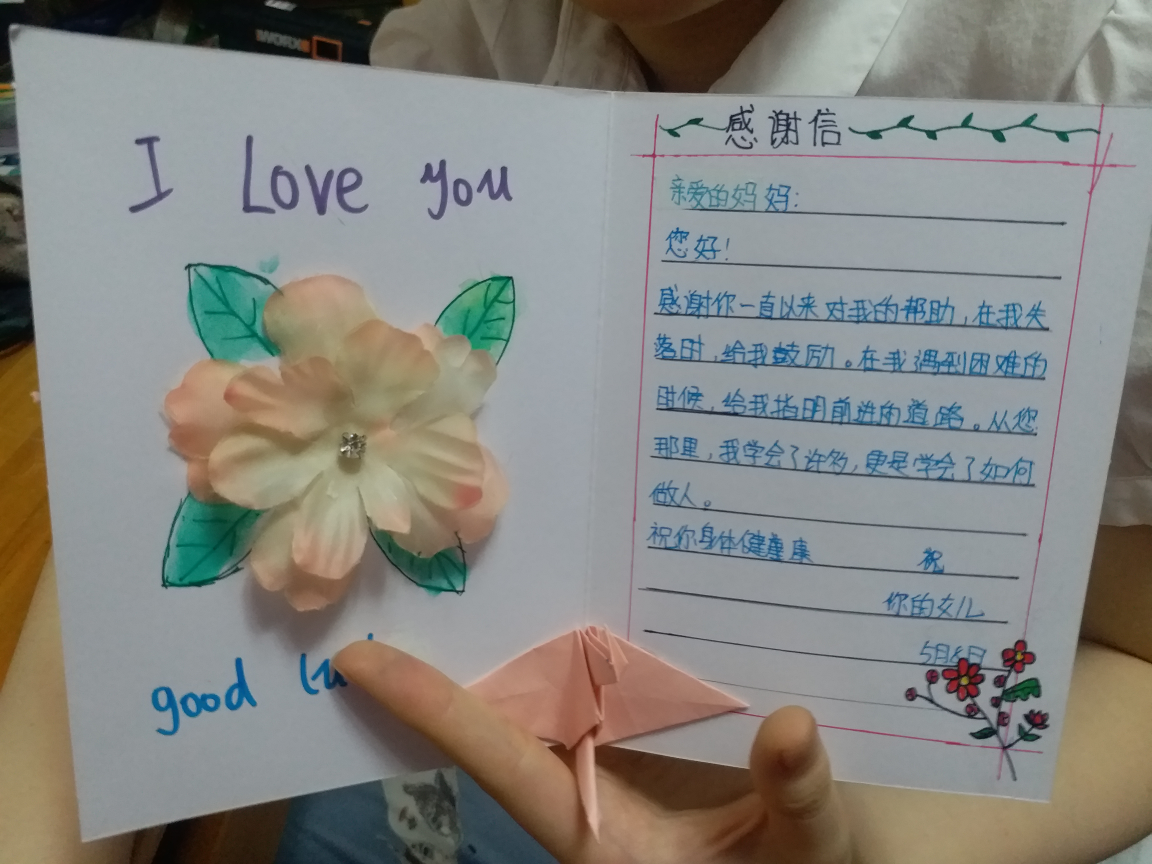 WORX
I Love you
good
感谢信
亲爱的妈妈:
您好!
感谢你一直以来对我的帮助,在我失
落时,给我鼓励。在我遇到困难的
时候,给我指明前进的道路。从您
那里,我学会了许多,更是学会了如何
做人。
祝你身体健康 祝
你的女儿
5月8日